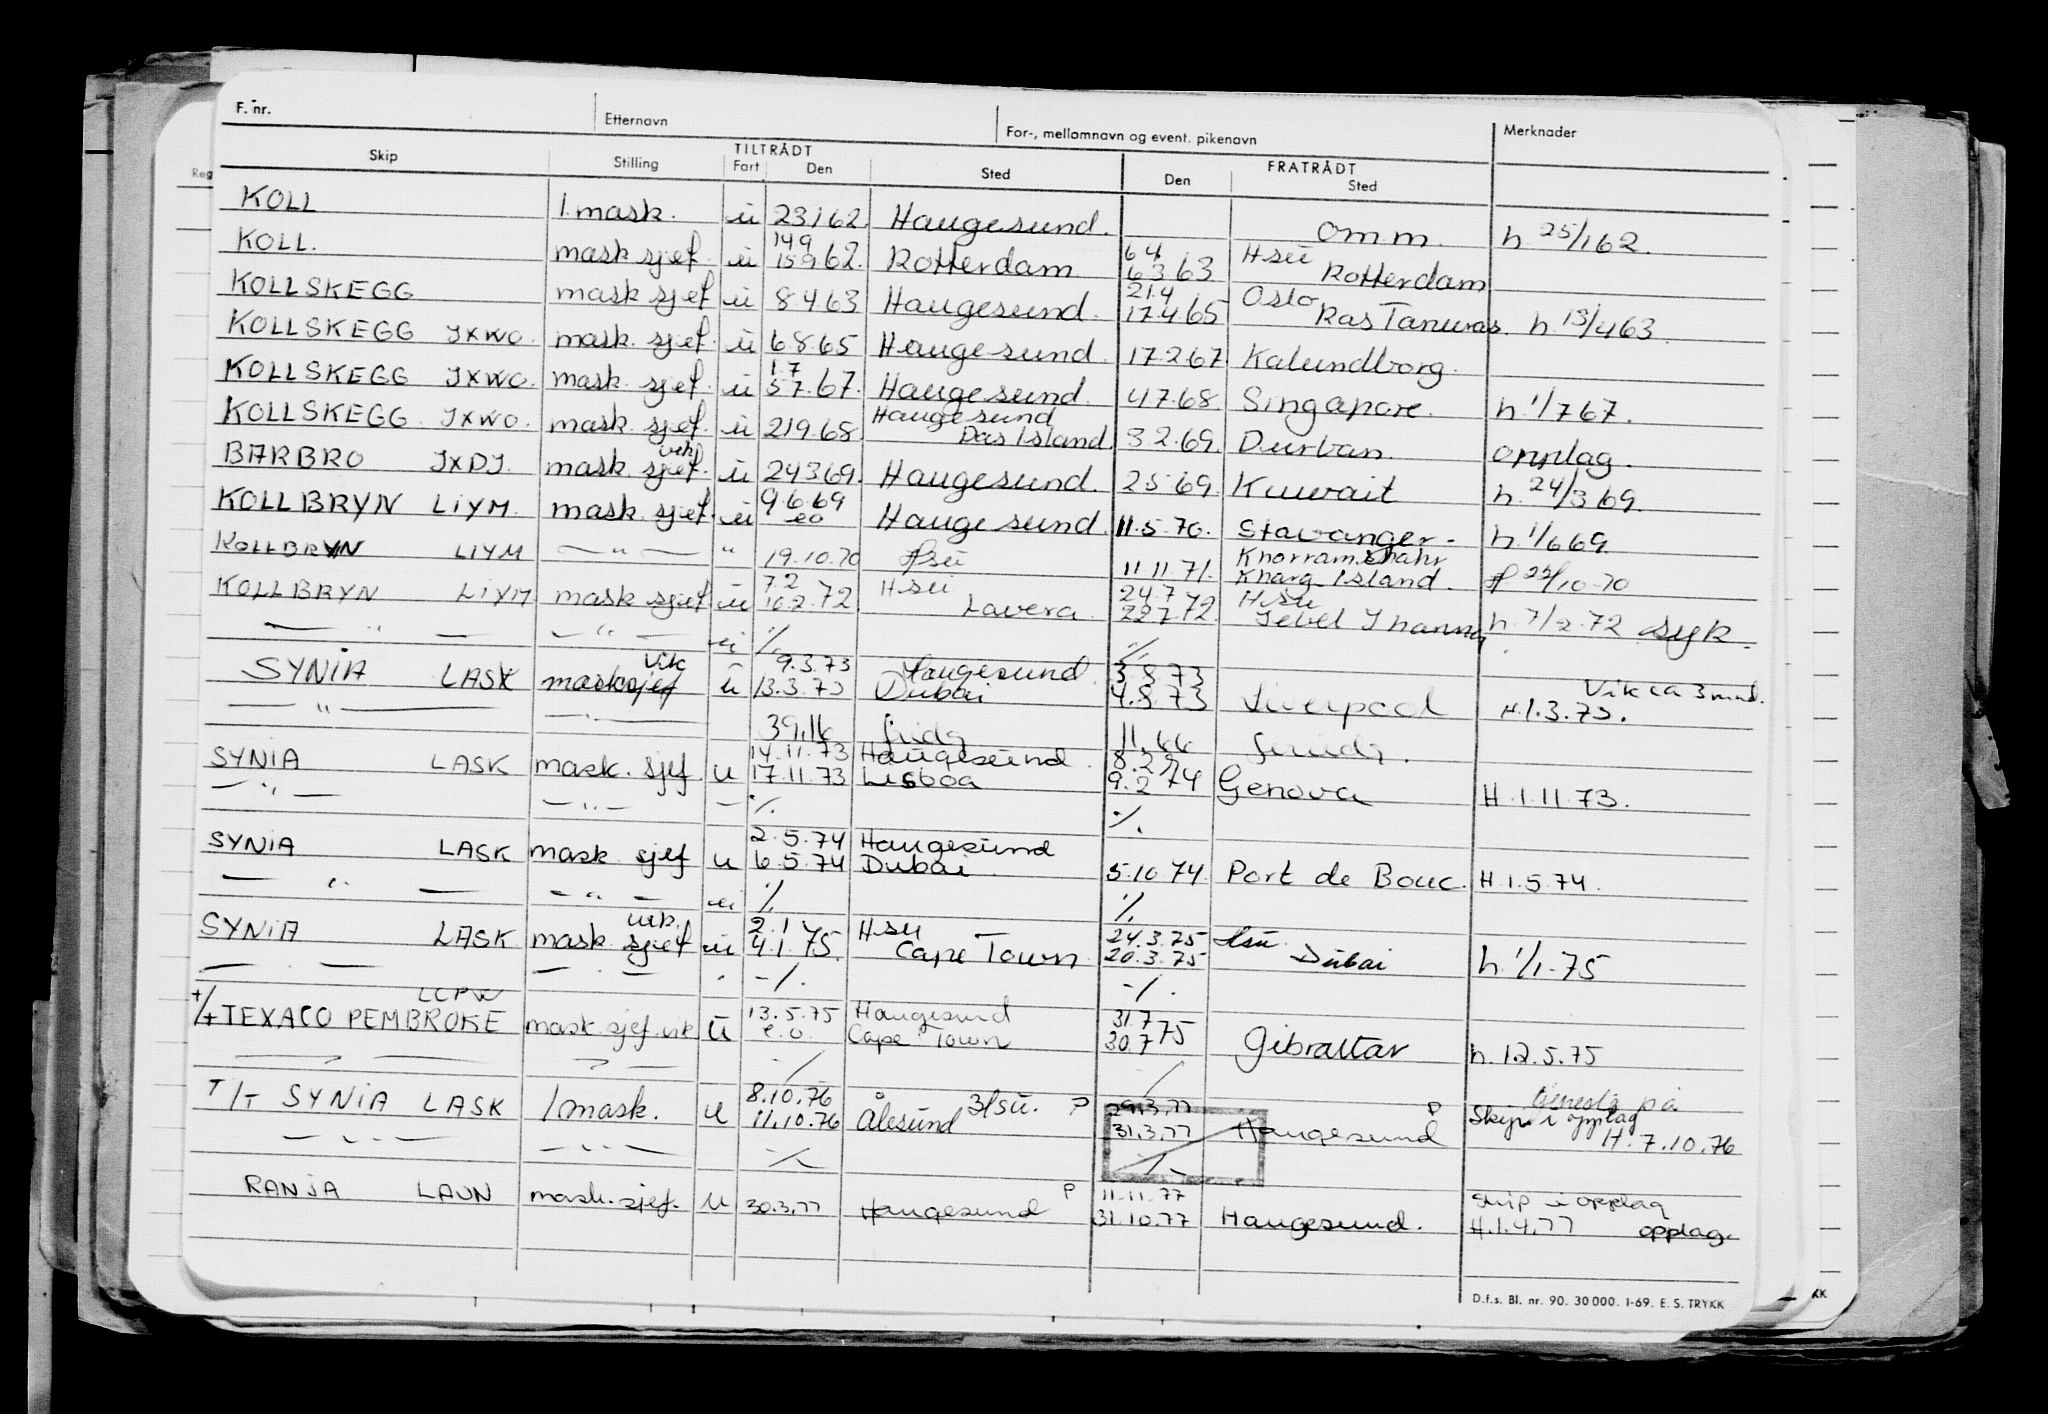 F. nr. Etternavn For-, mellomnavn og event. pikenavn Merknader
Skip Stilling TILTRÅDT Fart Den Sted FRATRÅDT Den Sted
KOLL 1. mask. u 23162. Haugesund. omm. h. 25/162.
KOLL. mask sjef. u 149 159 62. Rotterdam 64 63 63 Hsu Rotterdam
KOLLSKEGG mask sjef u 8463 Haugesund. 21.4 17.4.65 Oslo Ras Tanuras h. 13/463.
KOLLSKEGG JXWO. mask. sjef. u 6865 Haugesund. 17.2.67. Kalundborg.
KOLLSKEGG JXWO. mask. sjef. u 1.7 57.67. Haugesund 47.68. Singapore. h. 1/767.
KOLLSKEGG JXWO. mask. sjef. u 219.68 Haugesund Das Island. 32.69. Durban. opplag.
BARBRO JXDJ. mask. sjef. vik u 24369. Haugesund. 2569. Kuwait h. 24/369.
KOLLBRYN LIYM. mask. sjef. u 9.6.69 eo Haugesund. 11.5.70. Stavanger- h. 1/669
KOLLBRYN LIYM — " — " 19.10.70 Hsu 11.11.71. Khorramshahr Kharg Island.
KOLLBRYN LIYM mask sjef u 7.2 16.2.72 Hsu Lavera 24.7 72. Hsu Jebel h. 7/2.72 syk.
— " — — " — ./. ./.
SYNIA LASK masksjef vik u 9.3.73 13.3.73 Haugesund Dubai 3.8.73 4.8.73 Liverpool Vik ca 3 mnd. H.1.3.73.
— " — — " — 39,16 11,66
SYNIA LASK mask. sjef. u 14.11.73 17.11.73 Haugesund Lisboa 8.2 9.2 74 Genova H.1.11.73.
— " — — " — ./. ./.
SYNIA LASK mask sjef u 2.5.74 6.5.74 Haugesund Dubai. 5.10.74. Port de Bouc. H.1.5.74.
— " — — " — ./. ./.
SYNIA LASK mask sjef vik. u 2.1 4.1.75. Hsu Cape Town 24.3.75 20.3.75 Hsu. Dubai h. 1/1.75
— . — — . — -/. -/.
T/T TEXACO PEMBROKE LCPW mask sjef. vik u 13.5.75 e.o. Haugesund Cape Town 31.7 30.7 75 Gibraltar h. 12.5.75
T/T SYNIA LASK 1 mask. u 8.10.76 11.10.76 Hsu. Ålesund P 29.3.77 31.3.77 P Haugesund Skip i opplag på H. 7.10.76
— " — — " — -/- -/-
RANJA LAUN mask. sjef. u 30.3.77 Haugesund P 11.11.77 31.10.77 Haugesund. skip i opplag H.1.4.77 opplag.
D.f.s. Bl. nr. 90. 30 000. 1-69. E. S. TRYKK